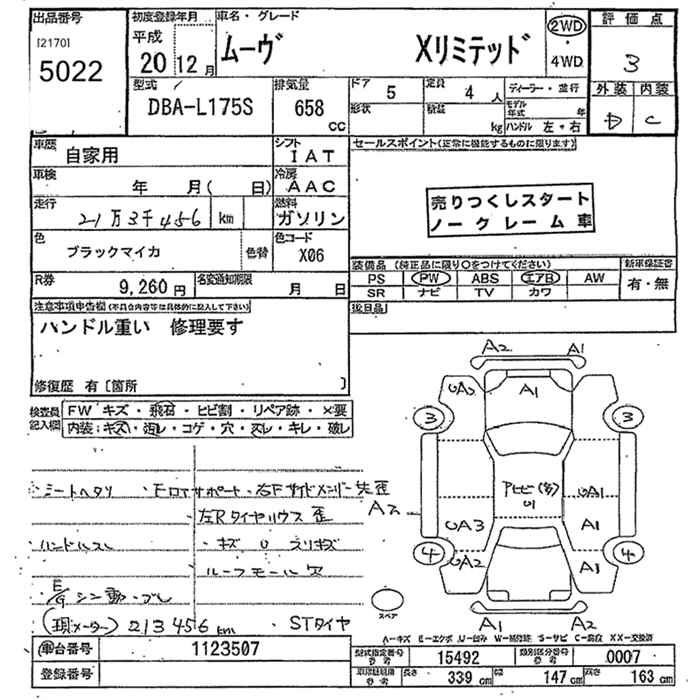 出品番号
[2170]
5022
初度登録年月
平成
20 12月
車名・グレード
ムーヴ Xリミテッド
2WD
・
4WD
評価点
3
外装 内装
D C
型式
DBA-L175S
排気量
658 CC
ドア 5
形状
定員 4 人
積載 kg
ディーラー・並行
モデル年式 年
ハンドル 左・右
車歴 自家用
シフト IAT
車検 年 月( 日)
冷房 AAC
走行 21万3千456 km
燃料 ガソリン
色 ブラックマイカ 色替
色コード X06
R券 9,260 円
名変通知期限 月 日
セールスポイント(正常に機能するものに限ります)
売りつくしスタート
ノークレーム車
装備品 (純正品に限り○をつけてください)
新車保証書
PS PW ABS エアB AW
SR ナビ TV カワ
有・無
後日品
注意事項申告欄(不具合内容等は具体的に記入して下さい)
ハンドル重い 修理要す
修復歴 有〔箇所 〕
検査員記入欄
FW キズ・飛石・ヒビ割・リペア跡・×要
内装:キズ・汚レ・コゲ・穴・スレ・キレ・破レ
シートヘタリ
・右Fサイドメンバー先歪
左Rタイヤハウス歪
ハンドルスレ
・キズ U スリキズ
ルーフモール欠
E/G シン動・ブレ
(現メーター) 213456km
STタイヤ
A2 A1
UA2 A1
3 3
アヒビ(多)
U1
A2
UA3
UA1
A1
4 4
UA2 A1
スペア
A1 A2
A-キズ E-エクボ U-凹み W-補修跡 S-サビ C-腐食 XX-交換済
車台番号 1123507
登録番号
型式指定番号 参考 15492
類別区分番号 参考 0007
長さ 339 cm 幅 147 cm 高さ 163 cm